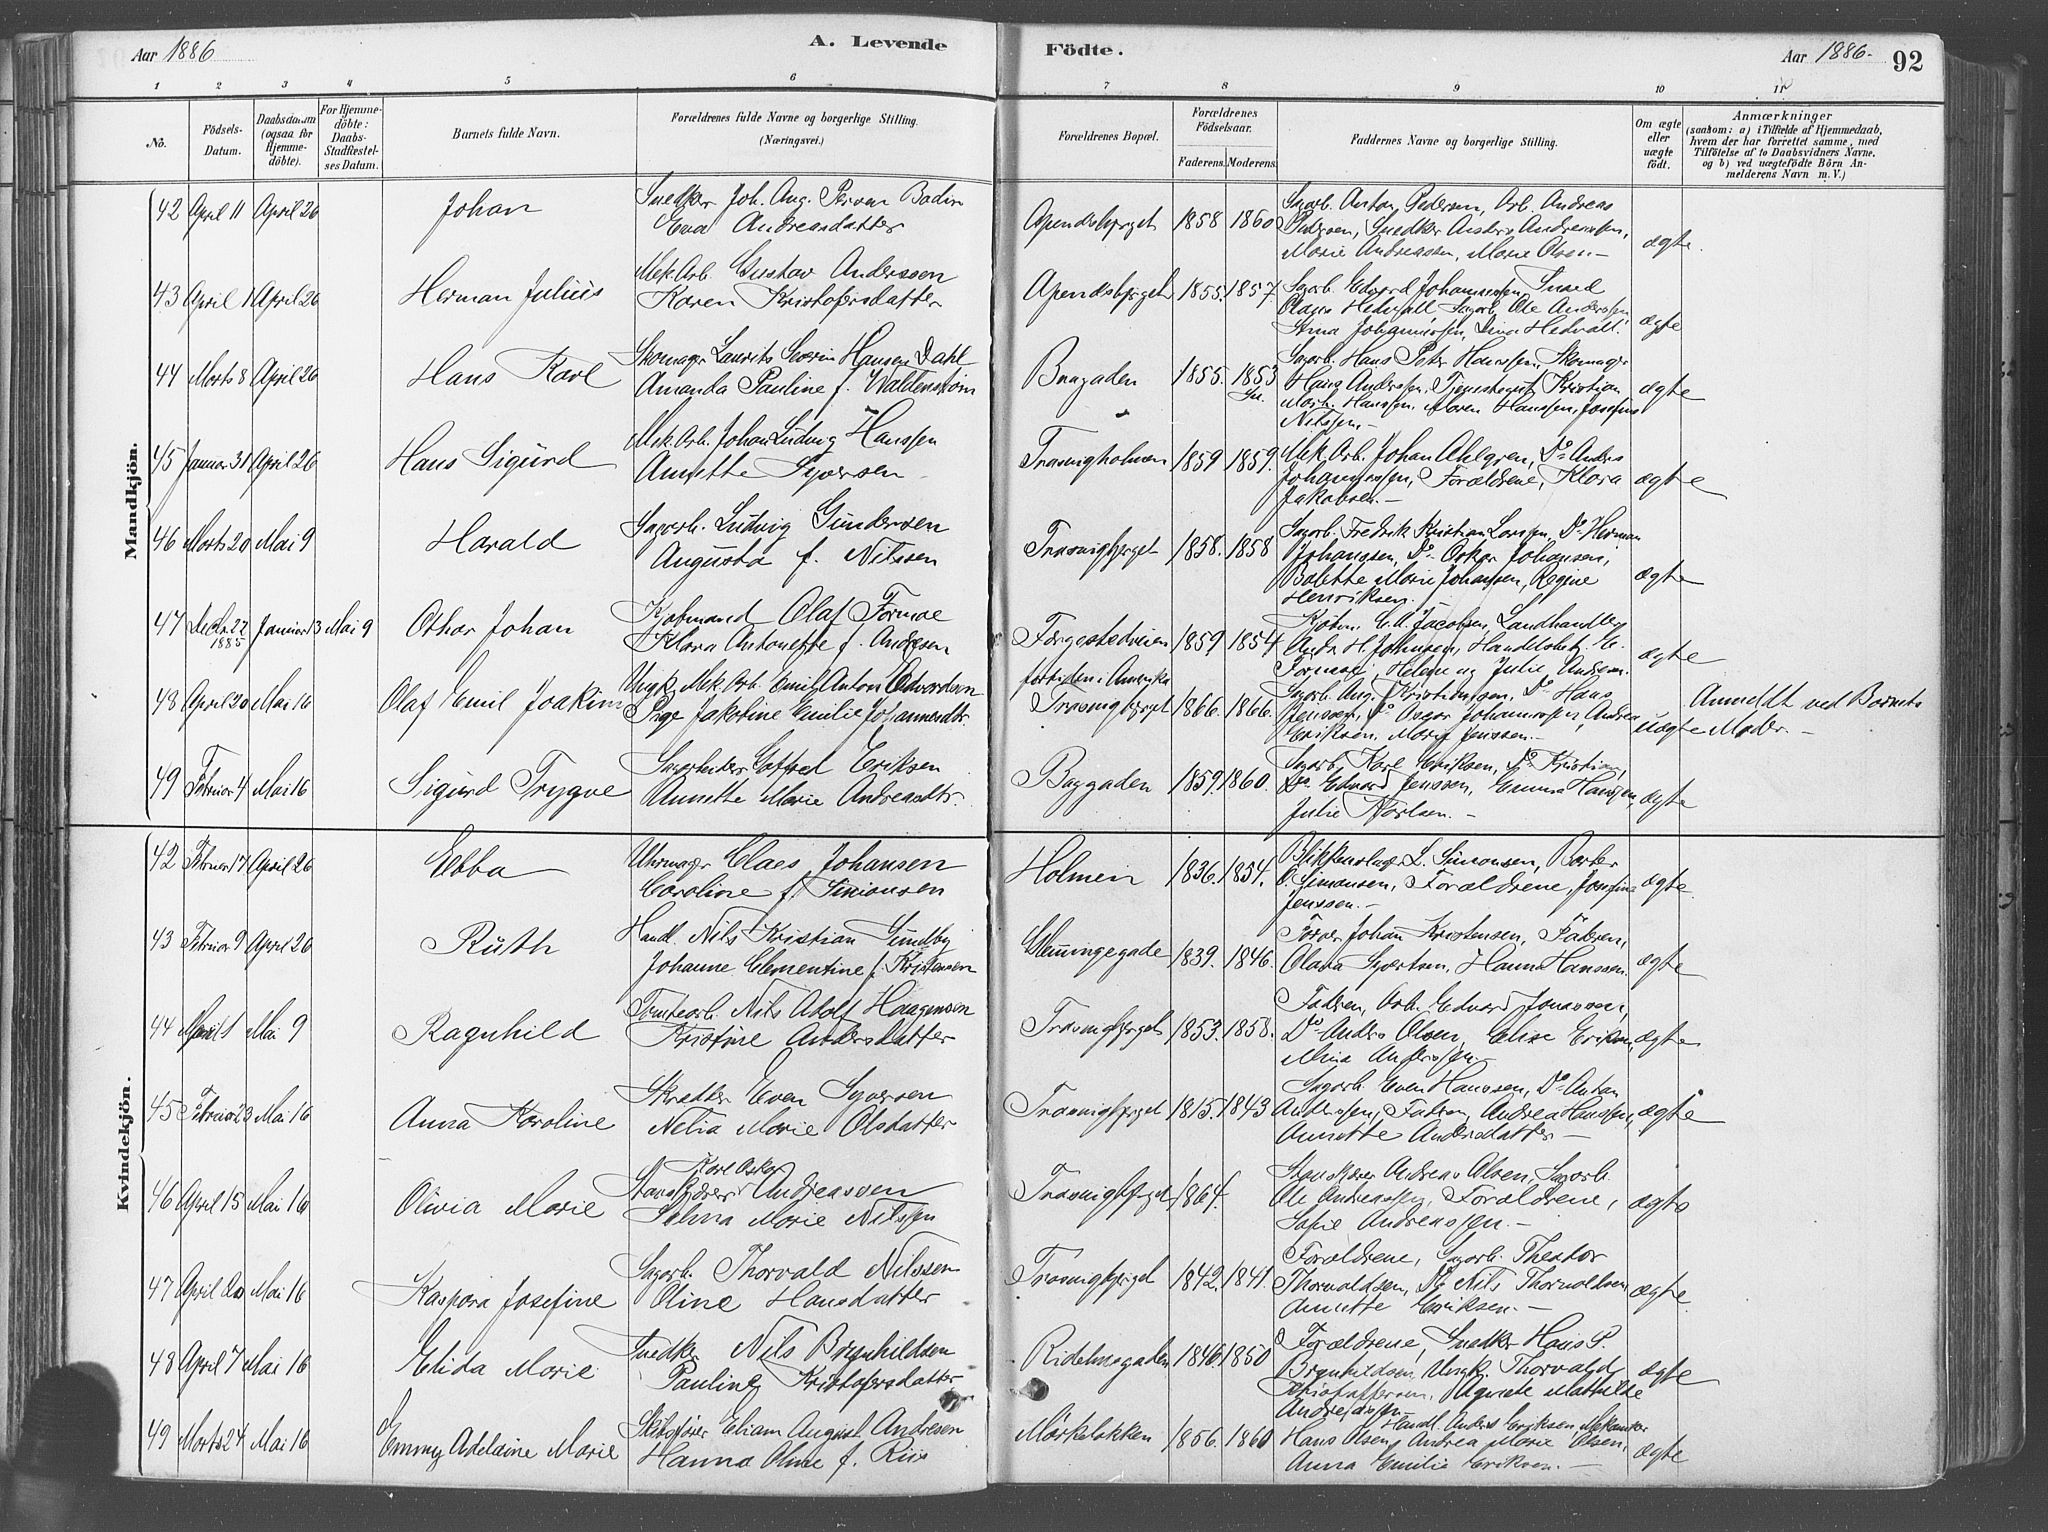 Aar 1886
A. Levende
Födte.
Aar 1886.
92
1 2 3 4 5 6 7 8 9 10 11
No.
Födsels-
Datum.
Daabsdatum
(ogsaa for
Hjemme-
döbte).
For Hjemme-
döbte:
Daabs-
Stadfæstel-
ses Datum.
Barnets fulde Navn.
Forældrenes fulde Navne og borgerlige Stilling.
(Næringsvei.)
Forældrenes Bopæl.
Forældrenes
Födselsaar.
Faderens. Moderens.
Faddernes Navne og borgerlige Stilling.
Om ægte
eller
uægte
födt.
Anmærkninger
(saasom: a) i Tilfælde af Hjemmedaab,
hvem der har forrettet samme, med
Tilföielse af to Daabsvidners Navne,
og b) ved uægtefödte Börn An-
melderens Navn m. V.)
Mandkjön.
42 April 11 April 26 Johan
Snedker Joh. Aug. Person Bodin
Eva Andreasdatter
Apenesbjerget 1858 1860
Sagarb. Anton Pedersen, Arb. Andreas
Pedersen, Snedker Anders Andreassen,
Marie Andreassen, Marie Olsen.—
ægte.
43 April 1 April 26 Herman Julius
Mek. Arb. Gustav Anderssen
Karen Kristofersdatter
Apenesbjerget 1855. 1857.
Sagarb. Edvard Johannessen, Sned
Hedvall Sagarb. Ole Anderssen
Johannessen, Hedvall.
ægte
44 Marts 8 April 26 Hans Karl
Skomager Laurits Severin Hansen Dahl
Amanda Pauline f. Waldenstrøm
Bragaden 1855. 1853
Sagarb. Hans Peter Hanssen, Skomager
Hans Anderssen, Kristian
Hanssen, Maren Hanssen, Josefine
Nilssen.—
ægte
45 Januar 31 April 26 Hans Sigurd
Mek. Arb. Johan Ludvig Hanssen
Annette Syversen
1859 1859.
Mek. Arb. Johan Ahlgren, Do Anders
Johannessen, Forældrene, Klara
Jakobsen.—
ægte
46 Marts 20 Mai 9 Harald
Sagarb. Ludvig Gundersen
Augusta f. Nilssen
Trosvigbjerget 1858. 1858
Sagarb. Fredrik Kristian Larssen, Do Herman
Johansen, Do Oskar Johansen,
Marie Johansen, Regine
Henriksen.
ægte
47 Decbr. 27
1885 Januar 13 Mai 9 Othar Johan
Kjøbmand Olaf Formoe
Klara Antonette f. Andresen
Færgestedveien 1859 1854
Kjøbm. C. A. Jacobsen, Landhandler
Johnsen,
Formoe, Helene og Julie Andresen.
ægte
48 April 20 Mai 16 Olaf Emil Joakim
Ungk. Mek. Arb. Emil Anton Edvardsen
Pige Jakobine Emilie Johannesdtr.
for tiden i Amerika
Trosvigbjerget 1866. 1866.
Sagarb. Aug. Kristiansen, Do Hans
Jenssen, Do Oscar Johannessen, Andrea
Eriksen, Marie Jenssen.—
uægte
Anmeldt ved Barnets
Moder.—
49 Februar 4 Mai 16 Sigurd Trygve
Sagarbeider Gotfred Eriksen
Annette Marie Andreasdtr.
Baggaden 1859. 1860.
Sagarb. Karl Eriksen, Do Kristian,
Do Edvard Jenssen, Emma Hansen,
Julie Karlsen.—
ægte
Kvindekjön.
42 Februar 17 April 26 Ebba
Uhrmager Claes Johansen
Caroline f. Simonsen
Holmen 1836. 1854.
Blikkenslager L. Simonsen, Barber
Simonsen, Forældrene, Josefine
Jenssen.—
ægte.
43 Februar 9 April 26 Ruth
Handl. Nils Kristian Sundby
Johanne Clementine f. Kristensen
Glemmingegade 1839. 1846.
Johan Kristensen, Faderen,
Olava Syvertsen, Hanna Hanssen.
ægte
44 April 1 Mai 9 Ragnhild
Tomtearb. Nils Adolf Haagensen
Kristine Andersdatter
Trosvigbjerget 1853. 1858.
Faderen, Arb. Edvard Jonassen,
Do Anders Olsen, Elise Eriksen,
Mina Anderssen.—
ægte
45 Februar 23 Mai 16 Anna Karoline
Skrædder Even Syversen
Nelia Marie Olsdatter
Trosvigbjerget 1815. 1843
Sagarb. Even Hanssen, Do Anton
Anderssen, Faderen, Andrea Hanssen,
Annette Andersdatter.—
ægte
46 April 15 Mai 16 Olivia Marie
Karl Oskar
Andreassen
Selma Marie Nilssen
Trosvigbjerget 1864.
Andreas Olsen, Sagarb.
Ole Andreassen, Forældrene,
Sofie Andreassen.—
ægte
47 April 20 Mai 16 Kaspara Josefine
Sagarb. Thorvald Nilssen
Oline Hansdatter
Trosvigbjerget 1842. 1841.
Forældrene, Sagarb. Theodor
Thorvaldsen, Do Nils Thorvaldsen,
Annette Eriksen.—
ægte.
48 April 7 Mai 16 Elida Marie
Snedker Nils Brynhildsen
Pauline Kristofersdatter
Ridehusgaden 1846. 1850
Forældrene, Snedker Hans P.
Brynhildsen, Ungk. Thorvald
Kristoffersen, Agnete Mathilde
Andreassen.
ægte
49 Marts 24 Mai 16 Emmy Adelaine Marie
Skibsfører Eliam August Andresen
Hanna Oline f. Riis
Mørkeløkken 1856. 1860
Handl. Anders Eriksen,
Hans Olsen, Andrea Marie Olsen,
Anna Emilie Eriksen.—
ægte